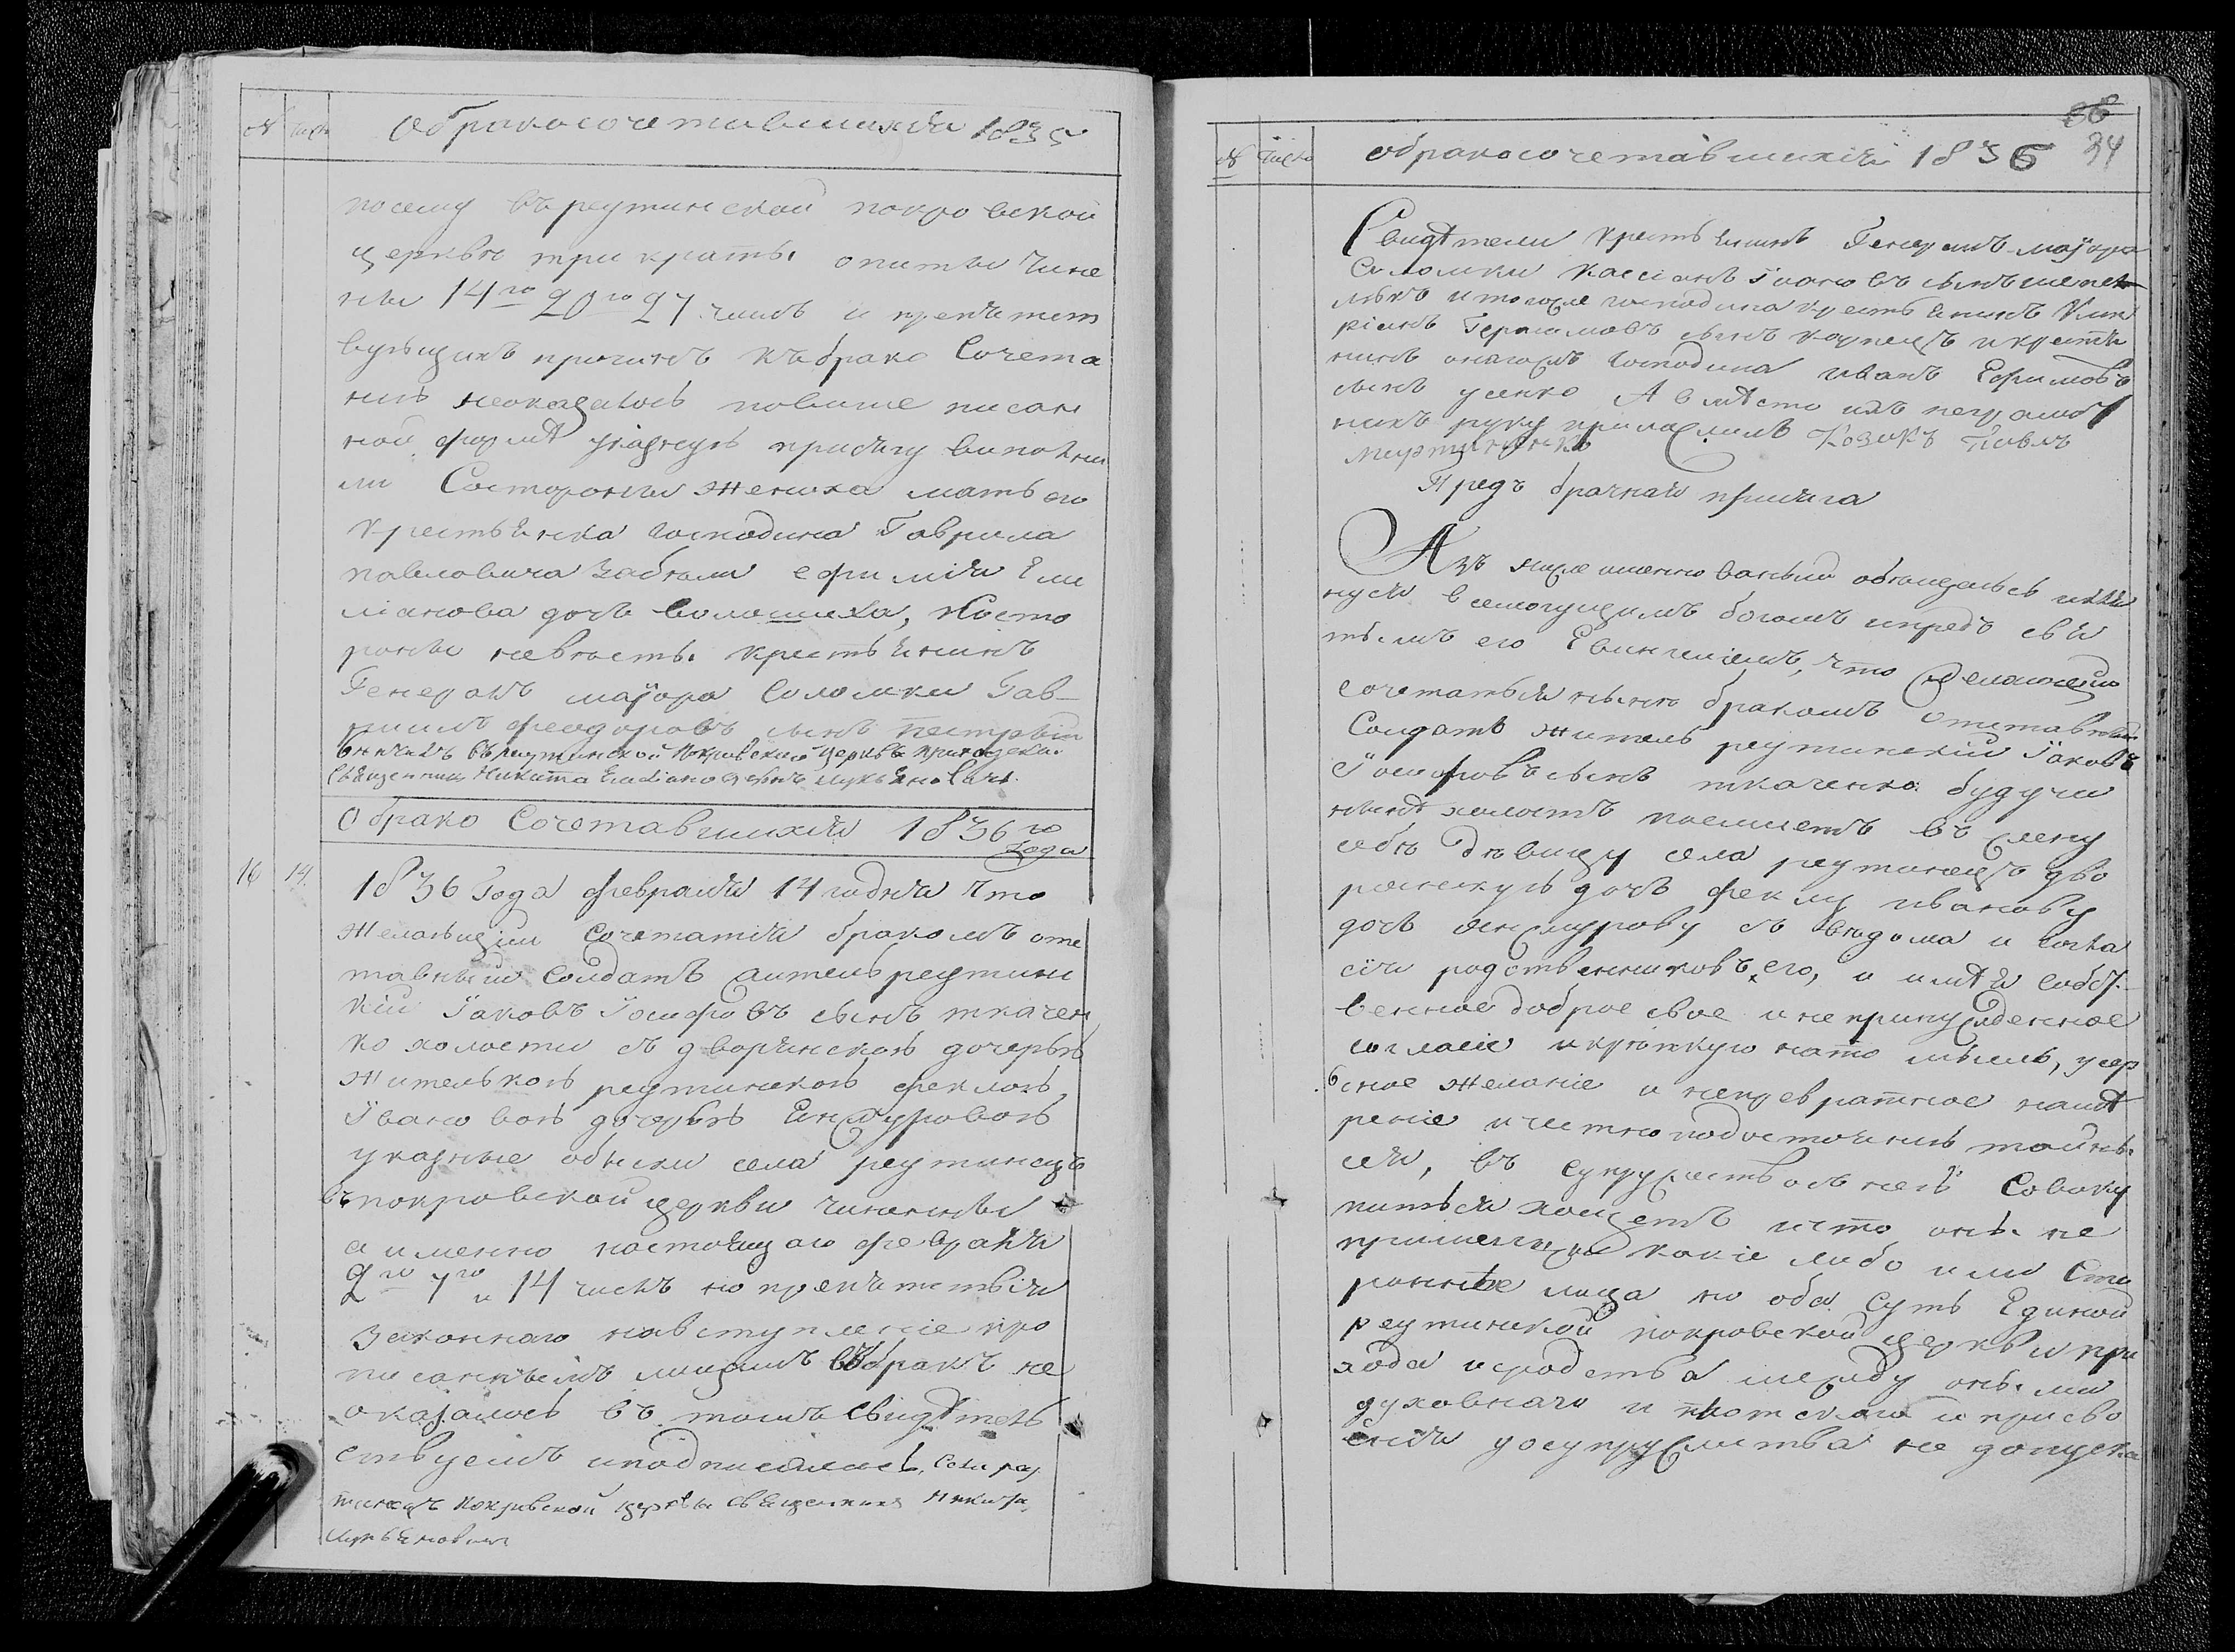 № Число
О бракосочетавшихся 1835
посему въ реутинской покровской
церквѣ три кратъ опиты чине
ны 14го 20го 27 чиселъ и препятст
вующихъ причинъ къ брако Сочета
нию неоказалось повыше писан
ной формѣ указную присягу выполни
ли Состороны жениха мать его
крестьянка господина Гаврила
павловича Забѣлы ефимия Еми
лианова дочь волошиха, Исто
роны невѣсты крестьянинъ
Генералъ маиора Соломки Гав-
риилъ феодоровъ сынъ пестрый
венчалъ въ реутинской Покровской церквѣ приходской
Священникъ Никита Лукьяновичъ
О брако Сочетавшихся 1836го Года
16 14
1836 Года февраля 14 го дня что
желающии Сочетатся бракомъ отс
тавный Солдатъ житель реутинс
кий Іаковъ Іосифовъ сынъ ткачен
ко холостый съ дворянскою дочерью
жителькою реутинскою феклою
Івановою дочерью
указные обыски села реутинецъ
въ покровской церкви чинены
а именно настоящаго февраля
2го 7го и 14 чиселъ но препятствия
законнаго навступление про
писаннымъ лицамъ въ бракъ не
оказалось въ томъ Свидѣтель
ствуемъ и подписались, Села реу
тинецъ покровской церкви священникъ Никита
Лукьяновичъ
№ Число
О бракосочетавшихся 1836
34
Свидѣтели крестьянинъ Генералъ-маиора
Соломки Касіанъ Івановъ сынъ
и тогоже господина крестьянинъ Кип
ріанъ Герасимовъ сынъ и крестья
нинъ онагожъ господина иванъ Ефимовъ
сынъ усенко А вмѣсто ихъ неграмот
ныхъ руку приложилъ Козакъ Павлъ
Предъ брачная присяга
Азъ ниже именно ванный обѣщаюсь и кля
нуся всемогущимъ богомъ и предъ свя
тымъ его Евангелиемъ, что желающий
сочетаться нынѣ бракомъ отставный
Солдатъ житель реутинский Іаковъ
Іосифовъ сынъ ткаченко будучи
нынѣ холостъ поемлетъ въ жену
себѣ дѣвицу села реутинецъ дво
рянскую дочь феклу иванову
дочь съ вѣдома и согла
сия родственниковъ его, и имѣя собст
венное доброе свое и непринужденное
согласие и крѣпкую на то мысль, усер
дное желание и непревратное намѣ
рение и честно подостоянию тайны
сея, въ супружество съ нею Совоку
питься хощетъ и что оны не
пришельцы какие либо или Сто
ронние лица но оба суть Единой
реутинской покровской церквы при
хода и сродства между оными
духовнаго и плотскаго и присво
ения до супружества не допуска